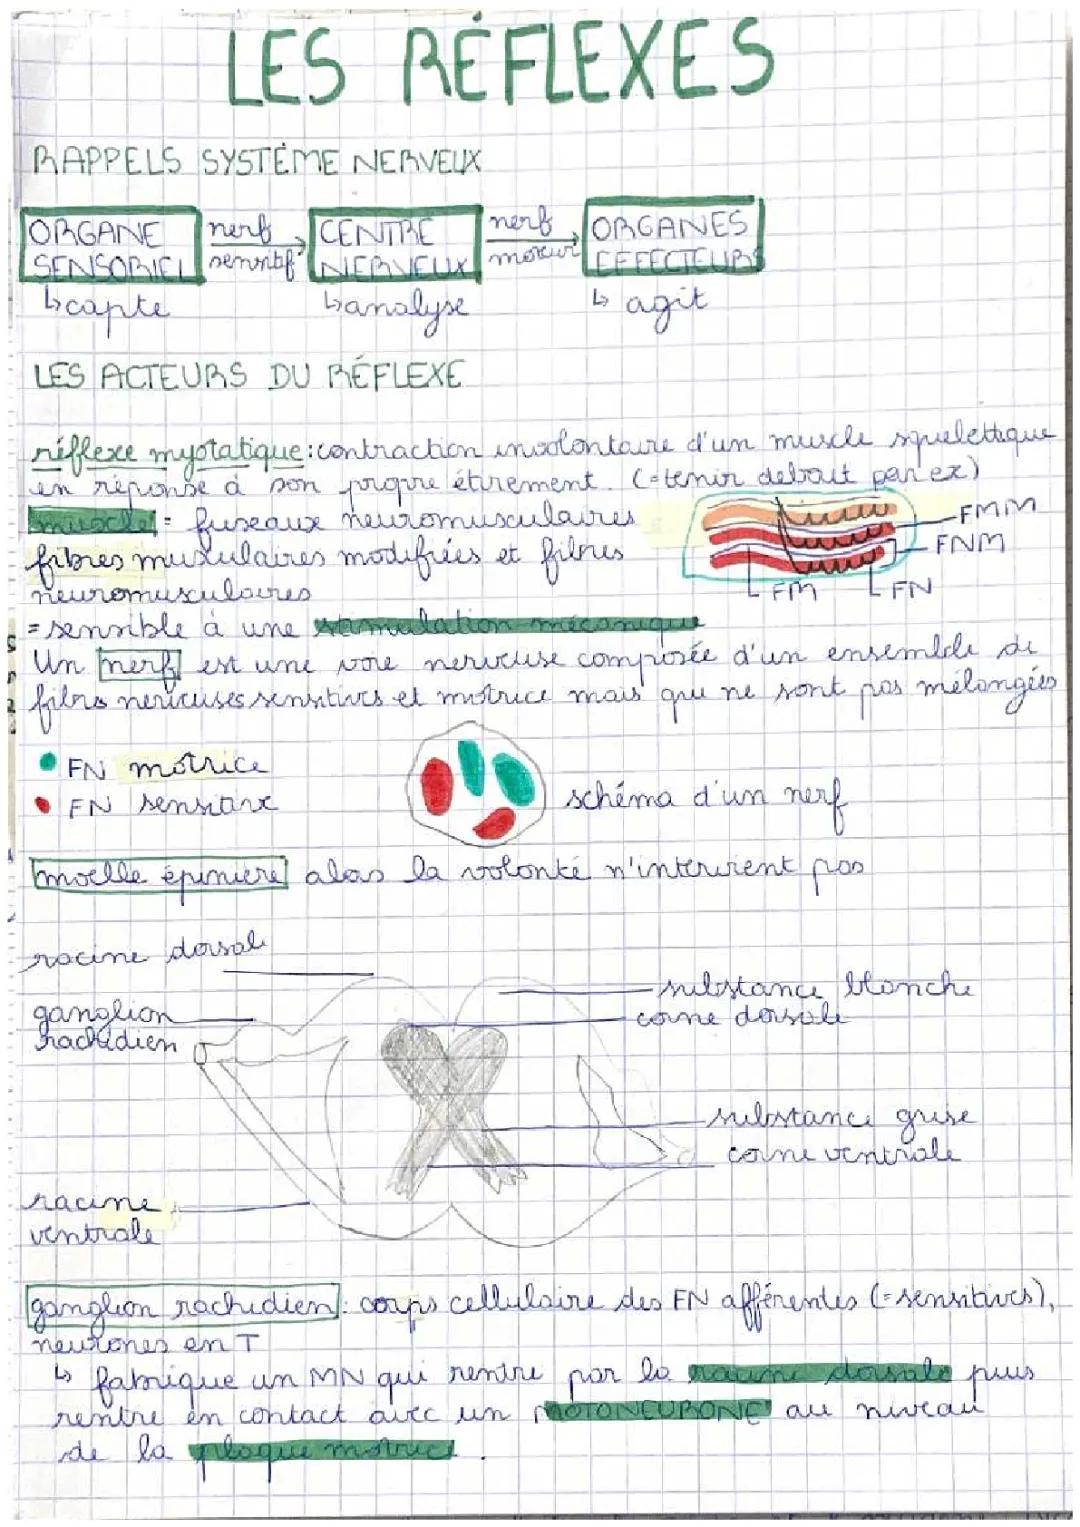 LES RÉFLEXES
RAPPELS SYSTÈME NERVEUX
ORGANE SENSORIEL
nerf sensitif
CENTRE NERVEUX
nerf moteur
ORGANES EFFECTEURS
↳ capte
↳ analyse
↳ agit
LES ACTEURS DU RÉFLEXE
réflexe myotatique: contraction involontaire d'un muscle squelettique
en réponse à son propre étirement. (=tenir debout par ex)
muscle = fuseaux neuromusculaires
fibres musculaires modifiées et fibres
neuromusculaires
FMM
FNM
FM
FN
= sensible à une stimulation mécanique
Un nerf est une voie nerveuse composée d'un ensemble de
fibres nerveuses sensitives et motrice mais que ne sont pas mélangées
FN motrice
FN sensitive
schéma d'un nerf
moelle épinière alors la volonté n'intervient pas
racine dorsale
substance blanche
ganglion
rachidien
corne dorsale
substance grise
corne ventrale
racine
ventrale
ganglion rachidien: corps cellulaire des FN afférentes (=sensitives),
neurones en T
↳ fabrique un MN qui rentre par la racine dorsale puis
rentre en contact avec un MOTONEURONE au niveau
de la plaque motrice.